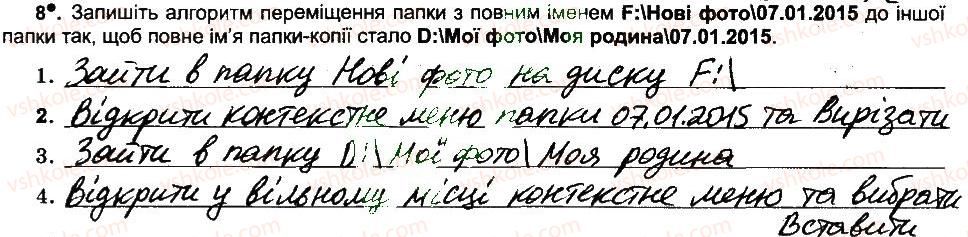 8●. Запишіть алгоритм переміщення папки з повним іменем F:\Нові фото\07.01.2015 до іншої
папки так, щоб повне ім'я папки-копії стало D:\Мої фото\Моя родина\07.01.2015.
1. Зайти в папку Нові фото на диску F:\
2. Відкрити контекстне меню папки 07.01.2015 та Вирізати
3. Зайти в папку D:\Мої фото\Моя родина
4. Відкрити у вільному місці контекстне меню та вибрати
Вставити